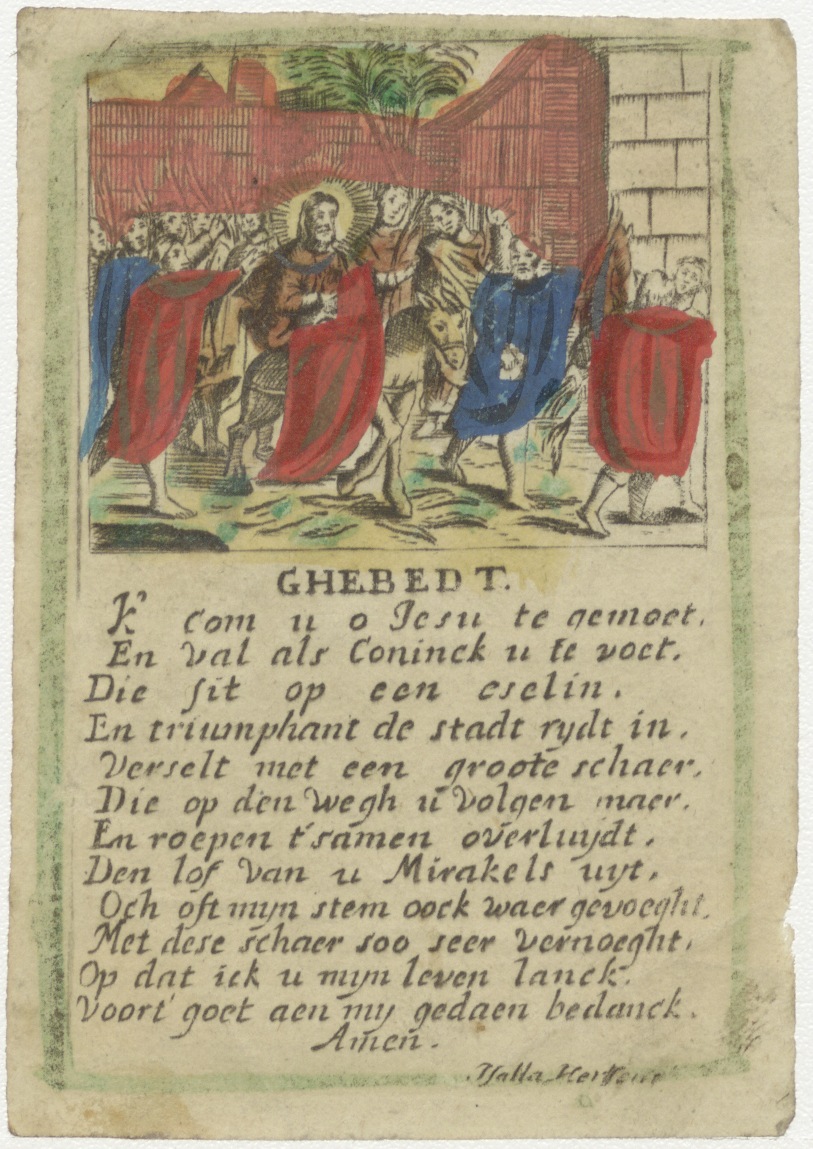 GHEBEDT.
K' com u o Jesu te gemoet.
En val als Coninck u te voet.
Die sit op een eselin.
En triumphant de stadt rydt in.
Verselt met een groote schaer.
Die op den wegh u volgen naer.
En roepen t'samen overluydt.
Den lof van u Mirakels uyt.
Och oft mijn stem oock waer gevoeght.
Met dese schaer soo seer vernoeght.
Op dat ick u mijn leven lanck.
Voort goet aen my gedaen bedanck.
Amen.